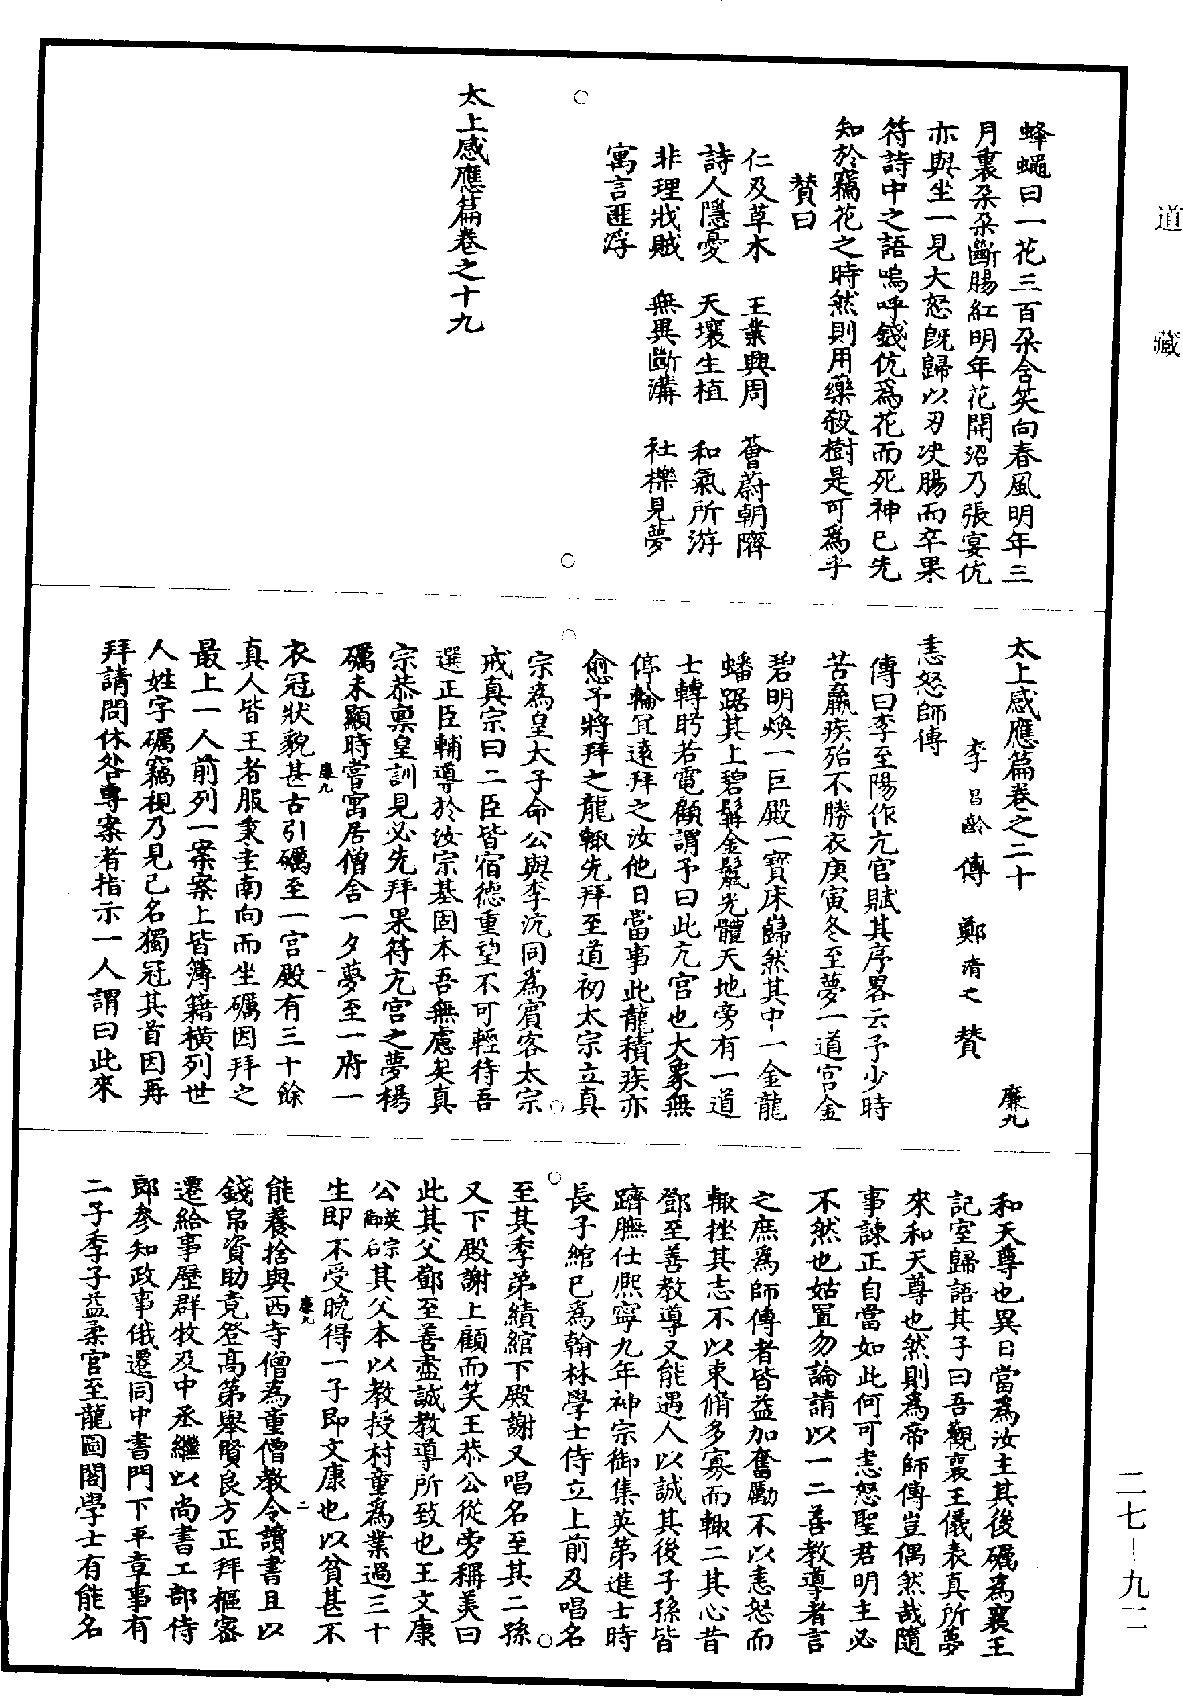 道藏
蜂蠅曰一花三百朵含笑向春風明年三
月裏朵朵斷腸紅明年花開沼乃張宴伉
亦與坐一見大怒既歸以刃决腸而卒果
符詩中之語嗚呼錢伉爲花而死神已先
知於竊花之時然則用藥殺樹是可爲乎
贊曰
仁及草木　王業興周　薈蔚朝隮
詩人隱憂　天壤生植　和氣所游
非理戕賊　無異斷溝　社櫟見夢
寓言匪浮
太上感應篇卷之十九
太上感應篇卷之二十　廉九
李昌齡傳　鄭清之贊
恚怒師傅
傳曰李至陽作亢宮賦其序畧云予少時
苦羸疾殆不勝衣庚寅冬至夢一道宮金
碧明煥一巨殿一寶床巋然其中一金龍
蟠踞其上碧髯金鬣光體天地旁有一道
士轉眄若電顧謂予曰此亢宮也大象無
停輪宜遠拜之汝他日當事此龍積疾亦
愈予將拜之龍輙先拜至道初太宗立真
宗爲皇太子命公與李沆同爲賓客太宗
戒真宗曰二臣皆宿德重望不可輕待吾
選正臣輔導於汝宗基固本吾無慮矣真
宗恭禀皇訓見必先拜果符亢宮之夢楊
礪未顯時嘗寓居僧舍一夕夢至一府一
衣冠狀貌甚古引礪至一宮殿有三十餘
廉九
真人皆王者服秉圭南向而坐礪因拜之
最上一人前列一案案上皆簿籍橫列世
人姓字礪竊視乃見己名獨冠其首因再
拜請問休咎專案者指示一人謂曰此來
和天尊也異日當爲汝主其後礪爲襄王
記室歸語其子曰吾觀襄王儀表真所夢
來和天尊也然則爲帝師傅豈偶然哉隨
事諫正自當如此何可恚怒聖君明主必
不然也姑置勿論請以一二善教導者言
之庶爲師傅者皆益加奮勵不以恚怒而
輙挫其志不以束脩多寡而輙二其心昔
鄧至善教導又能遇人以誠其後子孫皆
躋膴仕熙寧九年神宗御集英第進士時
長子綰已爲翰林學士侍立上前及唱名
至其季弟績綰下殿謝又唱名至其二孫
又下殿謝上顧而笑王恭公從旁稱美曰
此其父鄧至善盡誠教導所致也王文康
公英宗御名其父本以教授村童爲業過三十
生即不受晚得一子即文康也以貧甚不
能養捨與西寺僧爲童僧教令讀書且以
廉九　二
錢帛資助竟登高第舉賢良方正拜樞密
遷給事歷群牧及中丞繼以尚書工部侍
郎參知政事俄遷同中書門下平章事有
二子季子益柔官至龍圖閣學士有能名
二七－九二